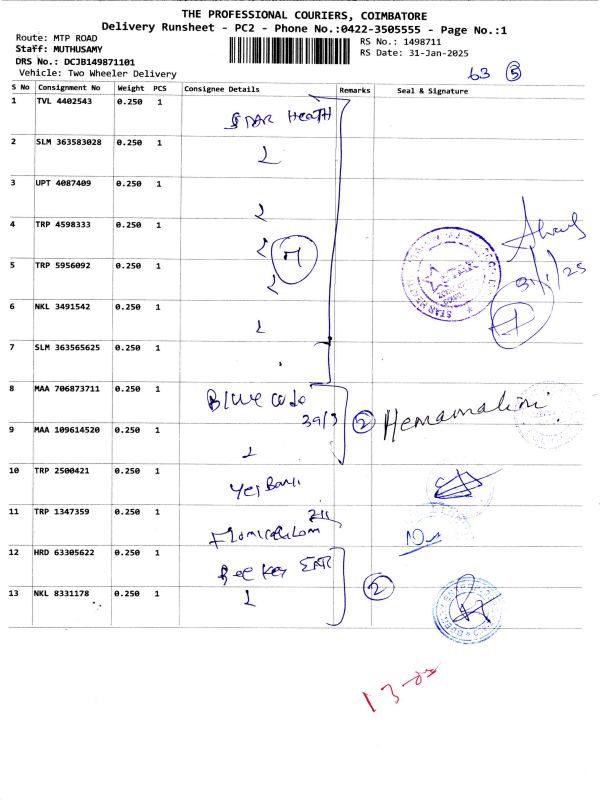 THE PROFESSIONAL COURIERS, COIMBATORE
Delivery Runsheet - PC2 - Phone No.:0422-3505555 - Page No.:1
Route: MTP ROAD
RS No.: 1498711
Staff: MUTHUSAMY
RS Date: 31-Jan-2025
DRS No.: DCJB149871101
Vehicle: Two Wheeler Delivery
63 5
S No Consignment No Weight PCS Consignee Details Remarks Seal & Signature
1 TVL 4402543 0.250 1 STAR Heath
2 SLM 363583028 0.250 1
3 UPT 4087409 0.250 1
4 TRP 4598333 0.250 1
5 TRP 5956092 0.250 1
31/1/25
6 NKL 3491542 0.250 1
7 SLM 363565625 0.250 1
8 MAA 706873711 0.250 1 Blue
39/3 2 Hemamalini
9 MAA 109614520 0.250 1
10 TRP 2500421 0.250 1 Yes Bank
11 TRP 1347359 0.250 1
12 HRD 63305622 0.250 1 Bee Key ENT
13 NKL 8331178 0.250 1 2
13